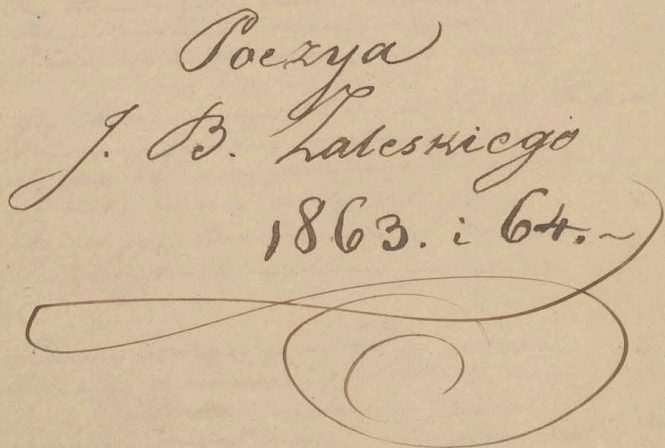 Poezya
J. B. Zaleskiego
1863. i 64.~